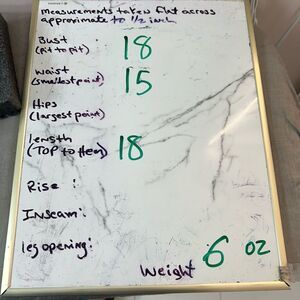 measurements taken flat across
approximate to 1/2 inch
Bust :
(pit to pit) 18
Waist
(smallest point) 15
Hips
(largest point)
length
(TOP to Hem) 18
Rise :
Inseam :
leg opening :
Weight 6 oz